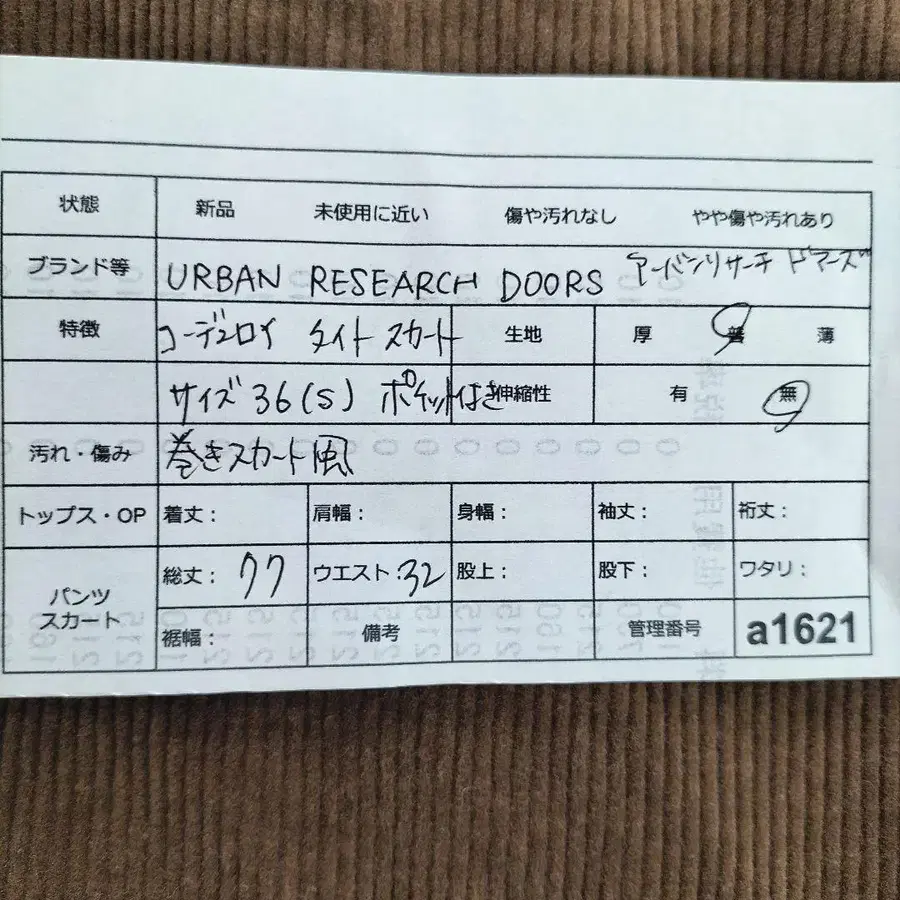 状態 新品 未使用に近い 傷や汚れなし やや傷や汚れあり
ブランド等 URBAN RESEARCH DOORS アーバンリサーチ ドアーズ
特徴 コーデュロイ タイト スカート 生地 厚 普 薄
サイズ 36(S) ポケット 伸縮性 有 無
汚れ・傷み 巻きスカート風
トップス・OP 着丈: 肩幅: 身幅: 袖丈: 裄丈:
パンツ スカート 総丈: 77 ウエスト:32 股上: 股下: ワタリ:
裾幅: 備考 管理番号 a1621